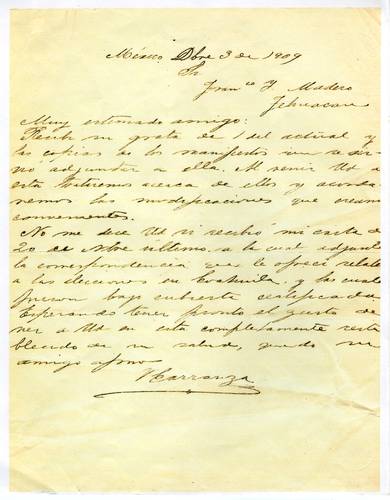 México Dbre 3 de 1909
Sr
Franco I. Madero
Tehuacan
Muy estimado amigo:
Recibí su grata de 1 del actual y
las copias de los manifiestos que se sir-
vió adjuntar a ella. Al venir Ud a
esta trataremos acerca de ellos y acorda-
remos las modificaciones que creamos
convenientes.
No me dice Ud si recibió mi carta de
20 de Nbre último, a la cual adjunté
la correspondencia que le ofrecí relativa
a las elecciones en Coahuila, y las cuales
fueron bajo cubierta certificada.
Esperando tener pronto el gusto de
ver a Ud en esta completamente resta-
blecido de su salud, quedo su
amigo afmo
V Carranza